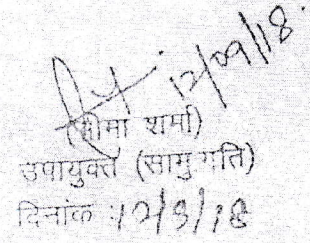 12/09/18.
(सीमा शर्मा)
उपायुक्त (सागु गति)
दिनांक 12/9/18